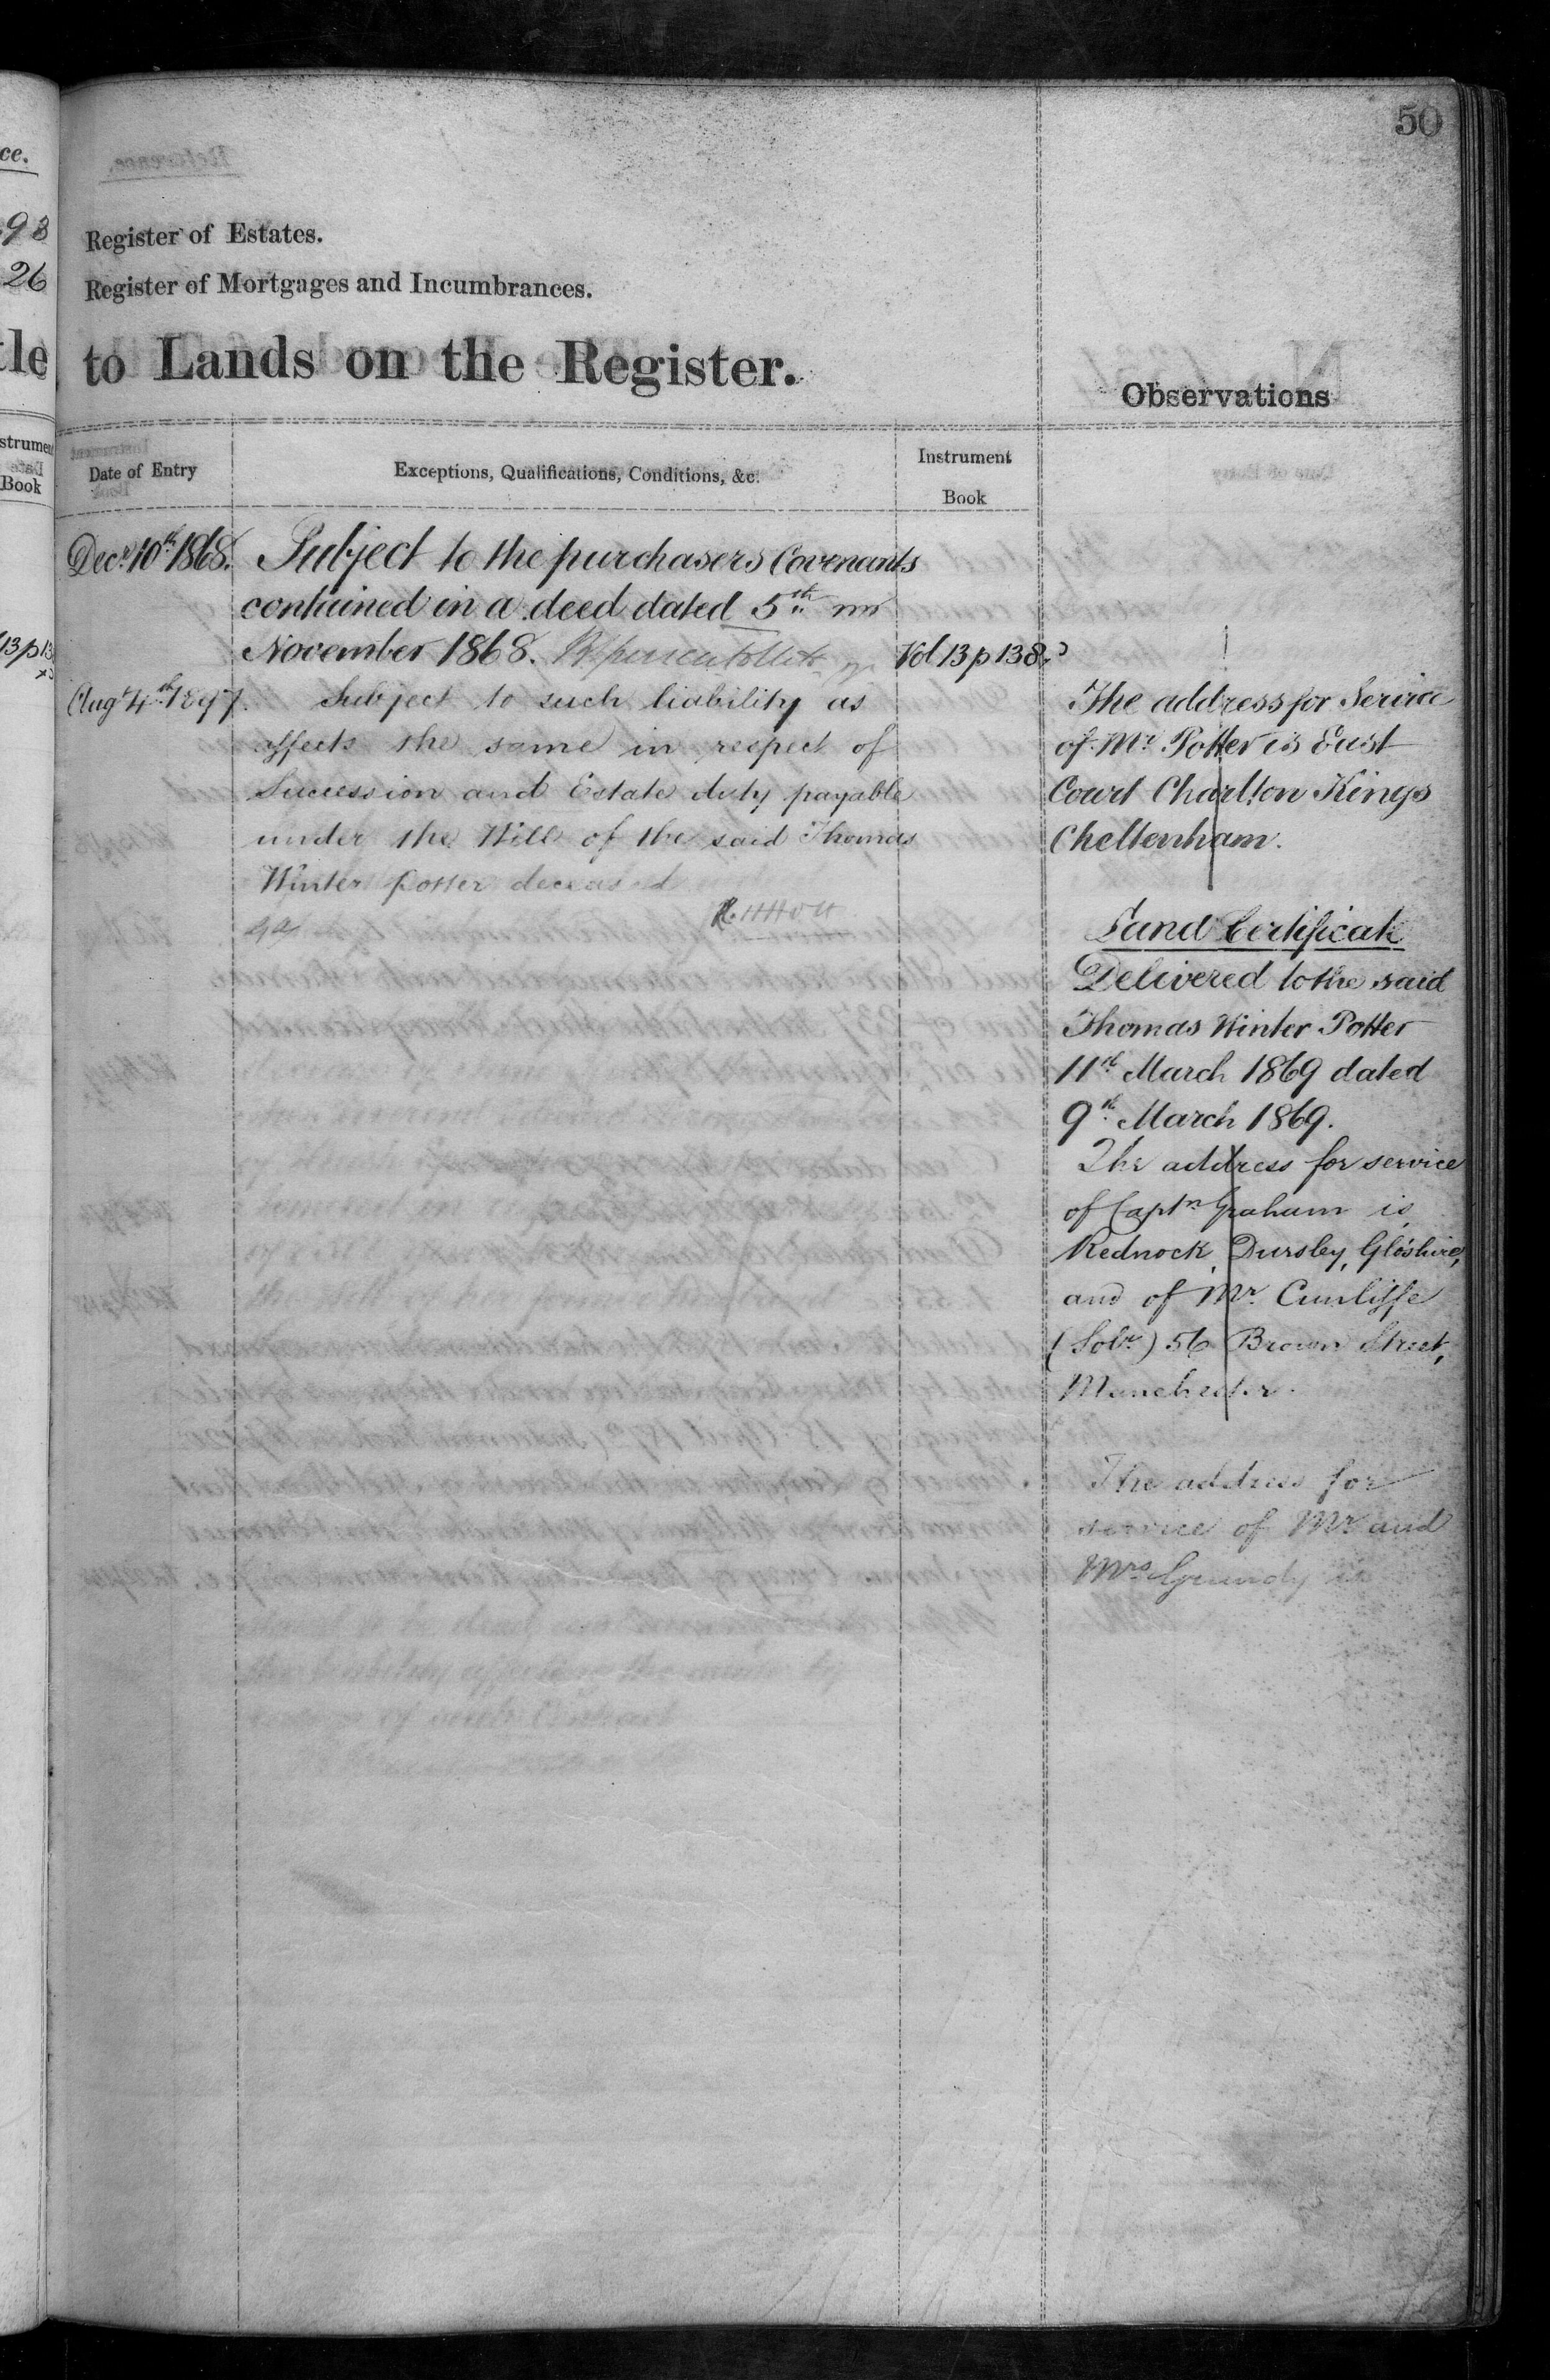 50
ce.
93
26
Register of Estates.
Register of Mortgages and Incumbrances.
tle
to Lands on the Register.
Observations
strument
Book
Date of Entry
Exceptions, Qualifications, Conditions, &c.
Instrument
Book
Decr. 10th 1868.
Subject to the purchasers Covenants
contained in a deed dated 5th
November 1868.
Vol 13 p 138.
13 p 13
Augt 4th 1897.
Subject to such liability as
affects the same in respect of
Succession and Estate duty payable
under the Will of the said Thomas
Winter Potter deceased
The address for Service
of Mr. Potter is East
Court Charlton Kings
Cheltenham.
Land Certificate
Delivered to the said
Thomas Winter Potter
11th March 1869 dated
9th March 1869.
The address for service
of Captn Graham is
Rednock, Dursley, Glo'shire,
and of Mr. Cunliffe
(Solr.) 56 Brown Street,
Manchester.
The address for
service of Mr and
Mrs Grundy is